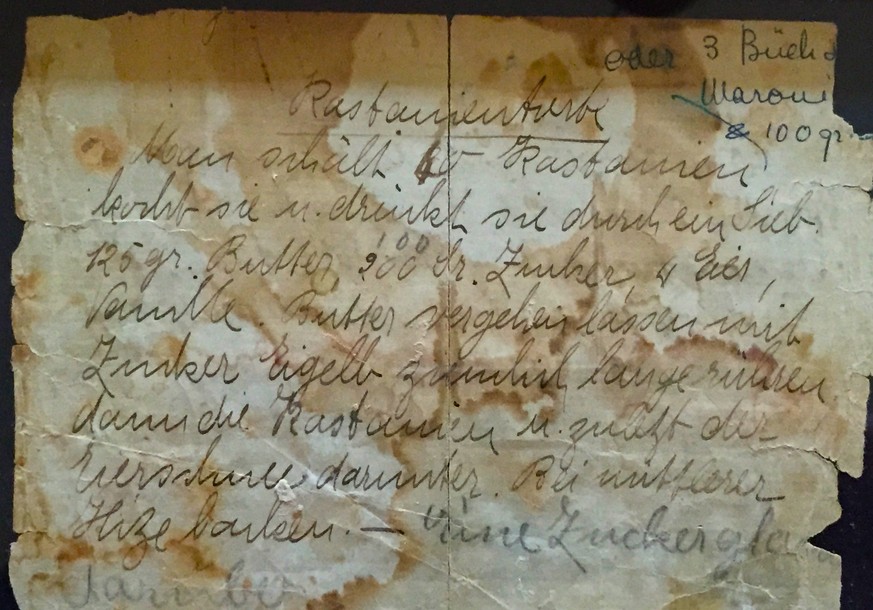 oder 3 Büch
Maroni
à 100 gr.
Kastanientorte
Man schält 40 Kastanien
kocht sie u. drückt sie durch ein Sieb.
125 gr. Butter, 200 Gr. Zucker, 4 Eier,
100
Vanille. Butter vergehen lassen mit
Zucker Eigelb ziemlich lange rühren
dann die Kastanien u. zuletzt der
Eierschnee darunter. Bei mittlerer
Hize backen. — eine Zuckergla
darüber